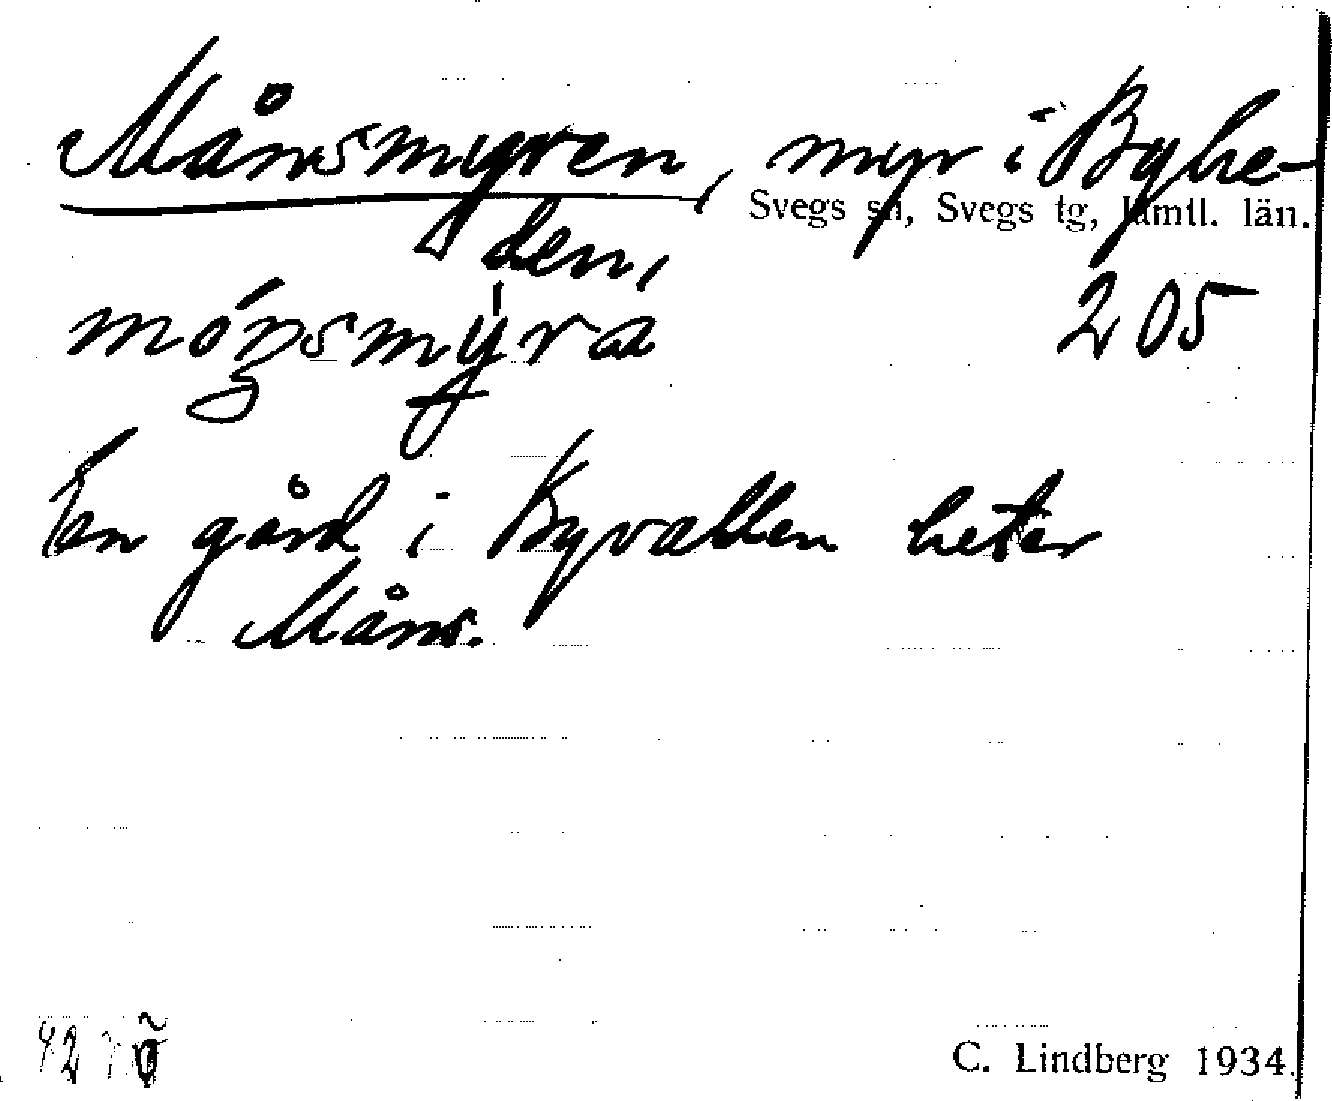 Månsmyren, myr i Byhe-
Svegs sn, Svegs tg, Jämtl. län.
den,
205
En gård i Byvallen heter
Måns.
C. Lindberg 1934.